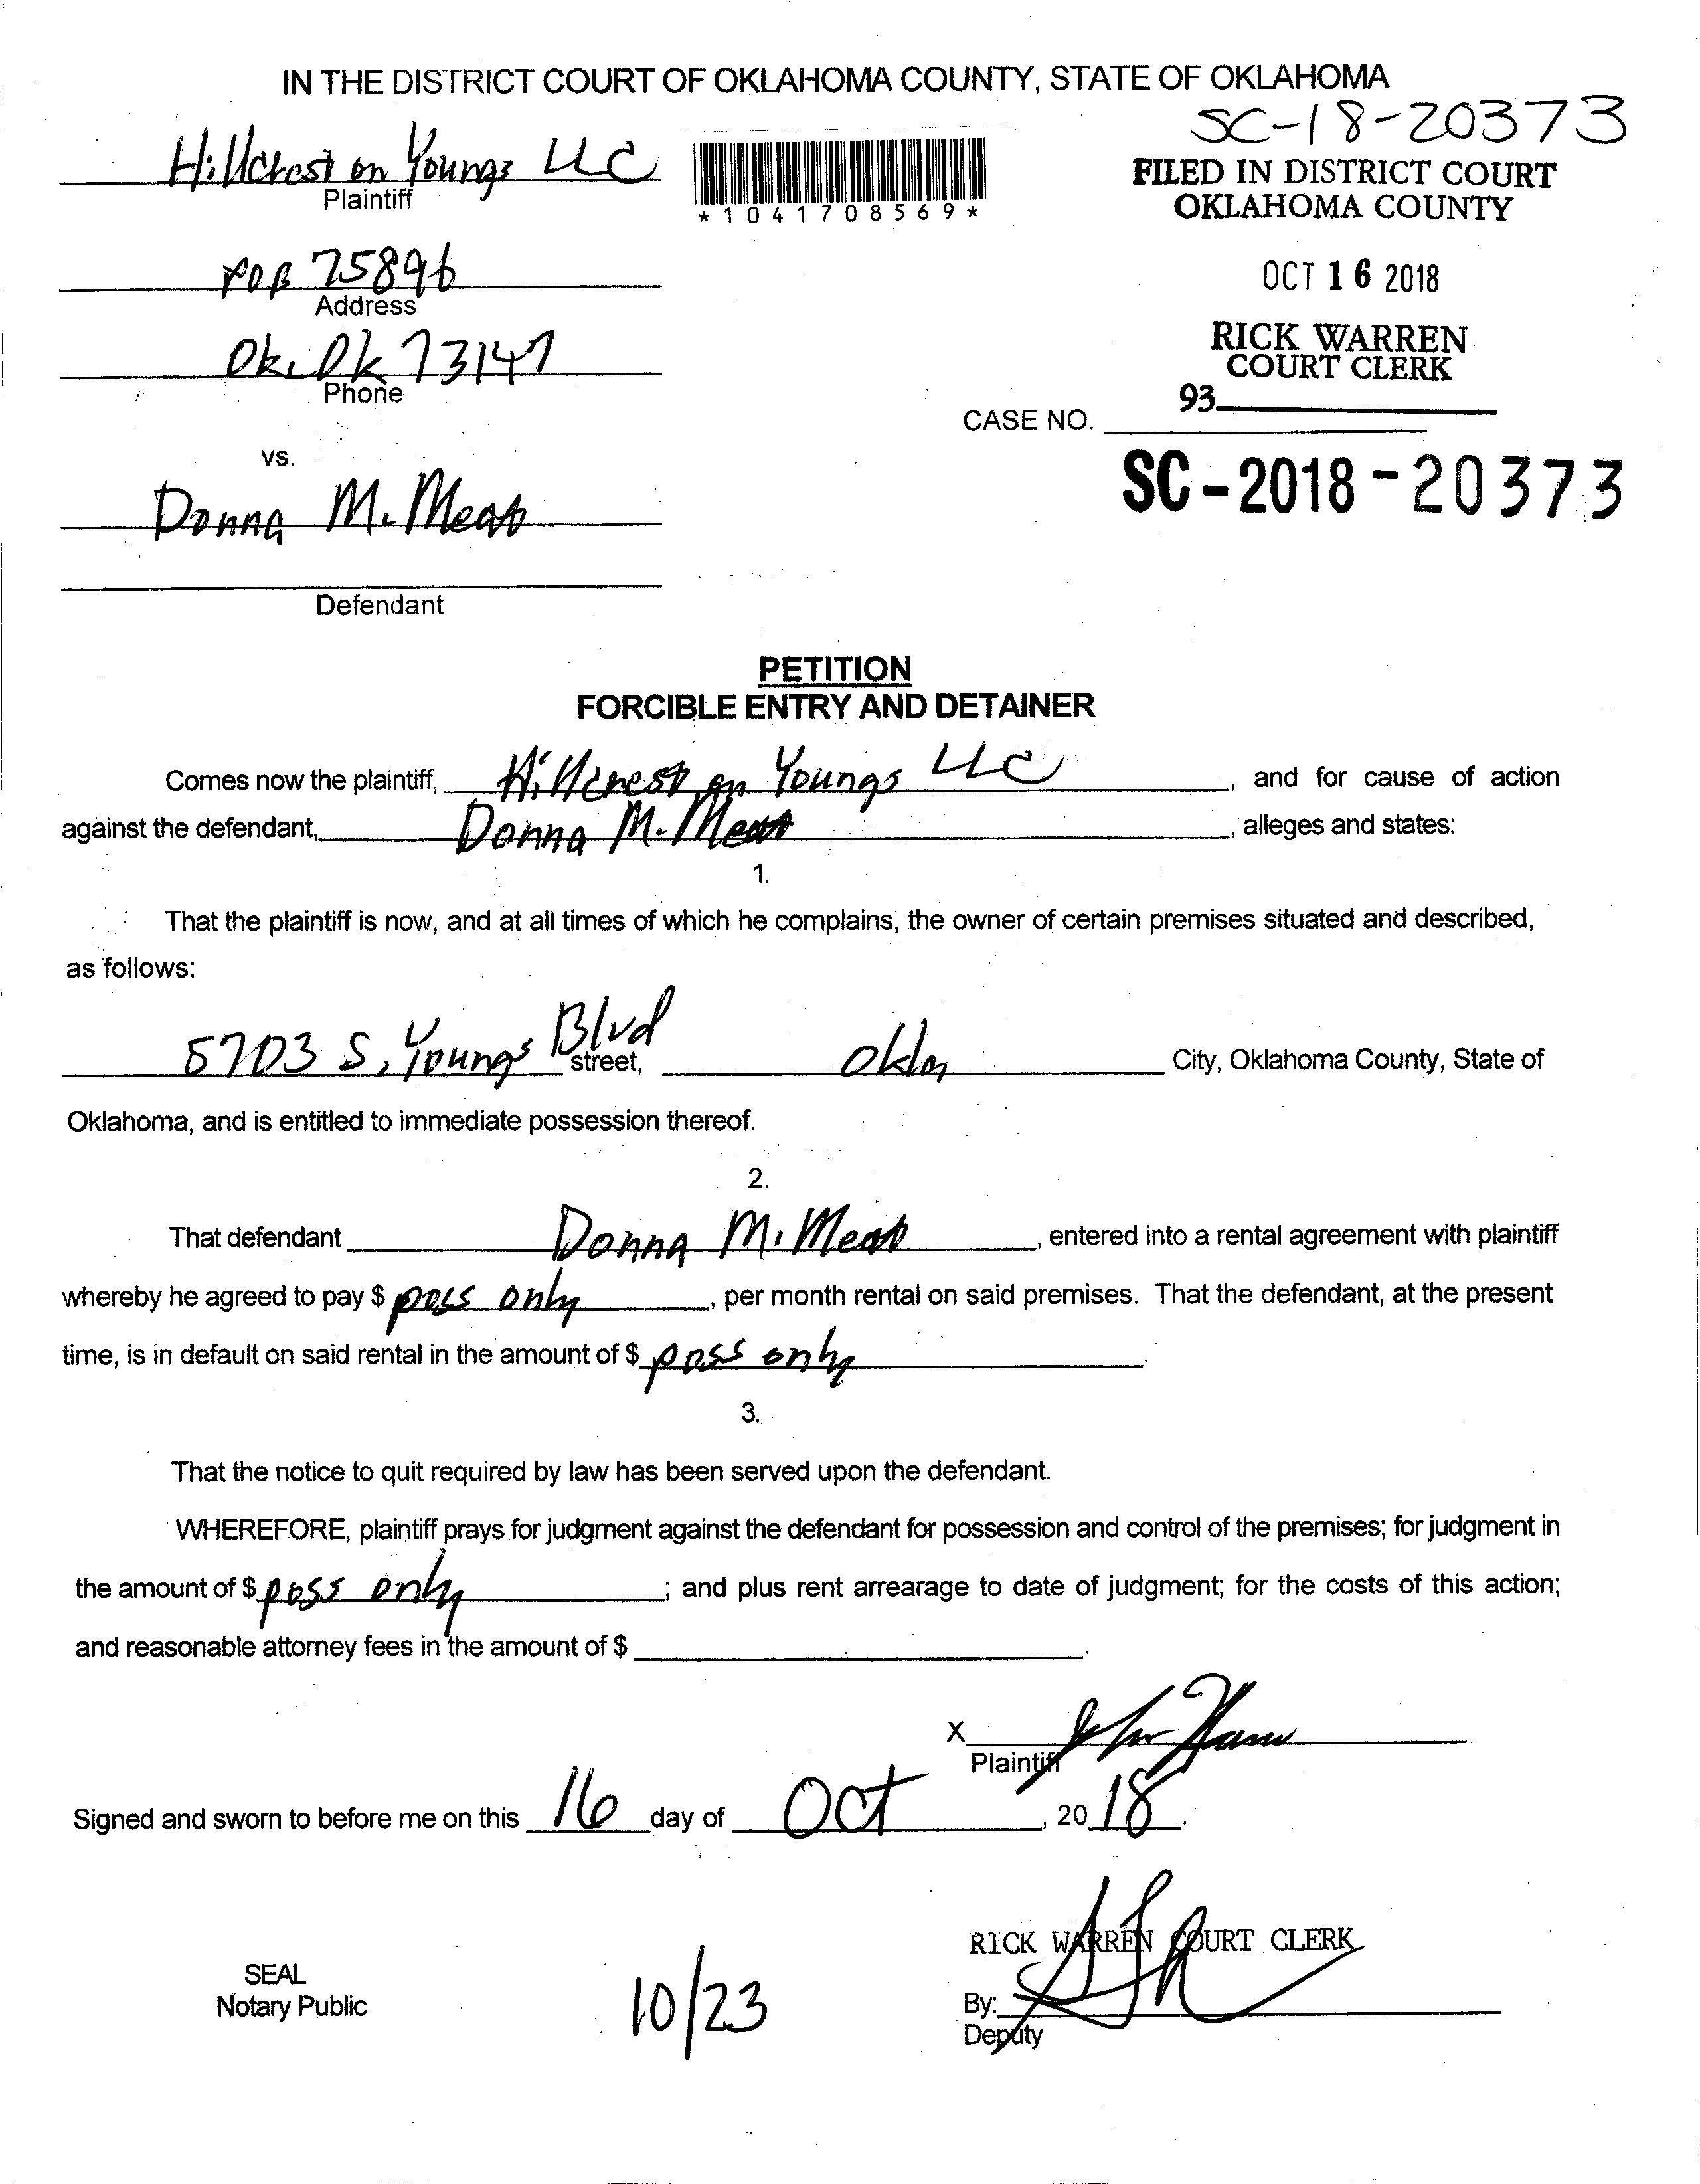 IN THE DISTRICT COURT OF OKLAHOMA COUNTY, STATE OF OKLAHOMA
SC-18-20373
Hillcrest on Youngs LLC
Plaintiff
*1041708569*
FILED IN DISTRICT COURT
OKLAHOMA COUNTY
POB 75896
Address
OCT 16 2018
Ok. Ok 73147
Phone
RICK WARREN
COURT CLERK
93
CASE NO.
vs.
SC-2018-20373
Donna M.
Defendant
PETITION
FORCIBLE ENTRY AND DETAINER
Comes now the plaintiff, Hillcrest on Youngs LLC, and for cause of action
against the defendant, Donna M., alleges and states:
1.
That the plaintiff is now, and at all times of which he complains, the owner of certain premises situated and described,
as follows:
5703 S. Youngs Blvd street, City, Oklahoma County, State of
Oklahoma, and is entitled to immediate possession thereof.
2.
That defendant Donna M., entered into a rental agreement with plaintiff
whereby he agreed to pay $ poss only, per month rental on said premises. That the defendant, at the present
time, is in default on said rental in the amount of $ poss only.
3.
That the notice to quit required by law has been served upon the defendant.
WHEREFORE, plaintiff prays for judgment against the defendant for possession and control of the premises; for judgment in
the amount of $ poss only; and plus rent arrearage to date of judgment; for the costs of this action;
and reasonable attorney fees in the amount of $ .
X
Plaintiff
Signed and sworn to before me on this 16 day of Oct, 20 18.
RICK WARREN COURT CLERK
SEAL
Notary Public
10/23
By:
Deputy